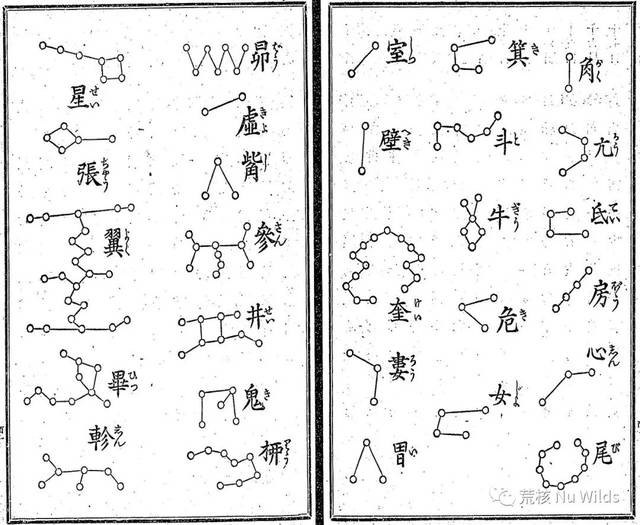 角 かく
亢 かう
氐 てい
房 ばう
心 しん
尾 び
箕 き
斗 と
牛 ぎう
危 き
女 ぢよ
室 しつ
壁 へき
奎 けい
婁 ろう
胃 い
昴 ばう
虛 きよ
觜 し
參 しん
井 せい
鬼 き
柳 りう
星 せい
張 ちやう
翼 よく
畢 ひつ
軫 しん
荒核 Nu Wilds